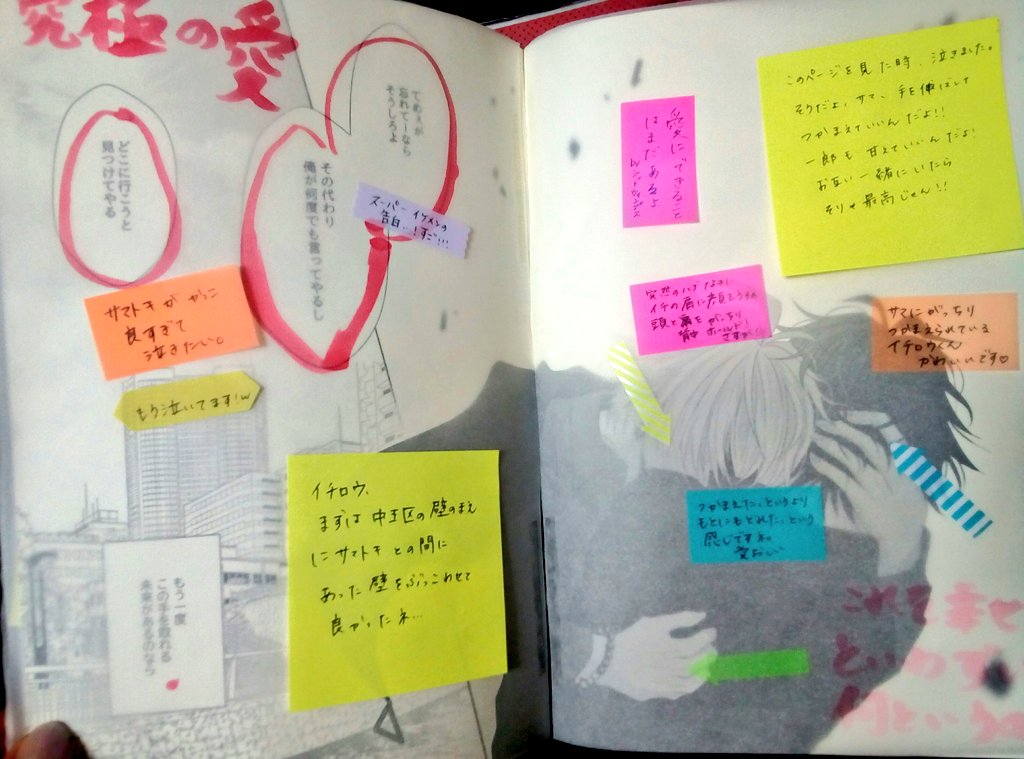 究極の愛
てめェが
忘れてーなら
そうしろよ
その代わり
俺が何度でも言ってやるし
どこに行こうと
見つけてやる
スーパーイケメンの
告白…!すご!!!
サマトキがかっこ
良すぎて
泣きたい。
もう泣いてます!w
イチロウ、
まずは中王区の壁のまえ
にサマトキとの間に
あった壁をぶっこわせて
良かったネ…
もう一度
この手を取れる
未来があるのなら
愛にできること
はまだあるよ
このページを見た時、泣きました。
そうだよ、サマ、手を伸ばして
つかまえていいんだよ!!
一郎も甘えていいんだよ!
お互い一緒にいたら
そりゃ最高じゃん!!
突然のハグなのに
イチの肩に顔をうずめ
頭と背をがっちり
サマにがっちり
つかまえられている
イチロウくん
かわいいです♡
つかまえた、というより
もとにもどれた、という
感じですネ。
愛おしい
これを幸せ
といわず
何という